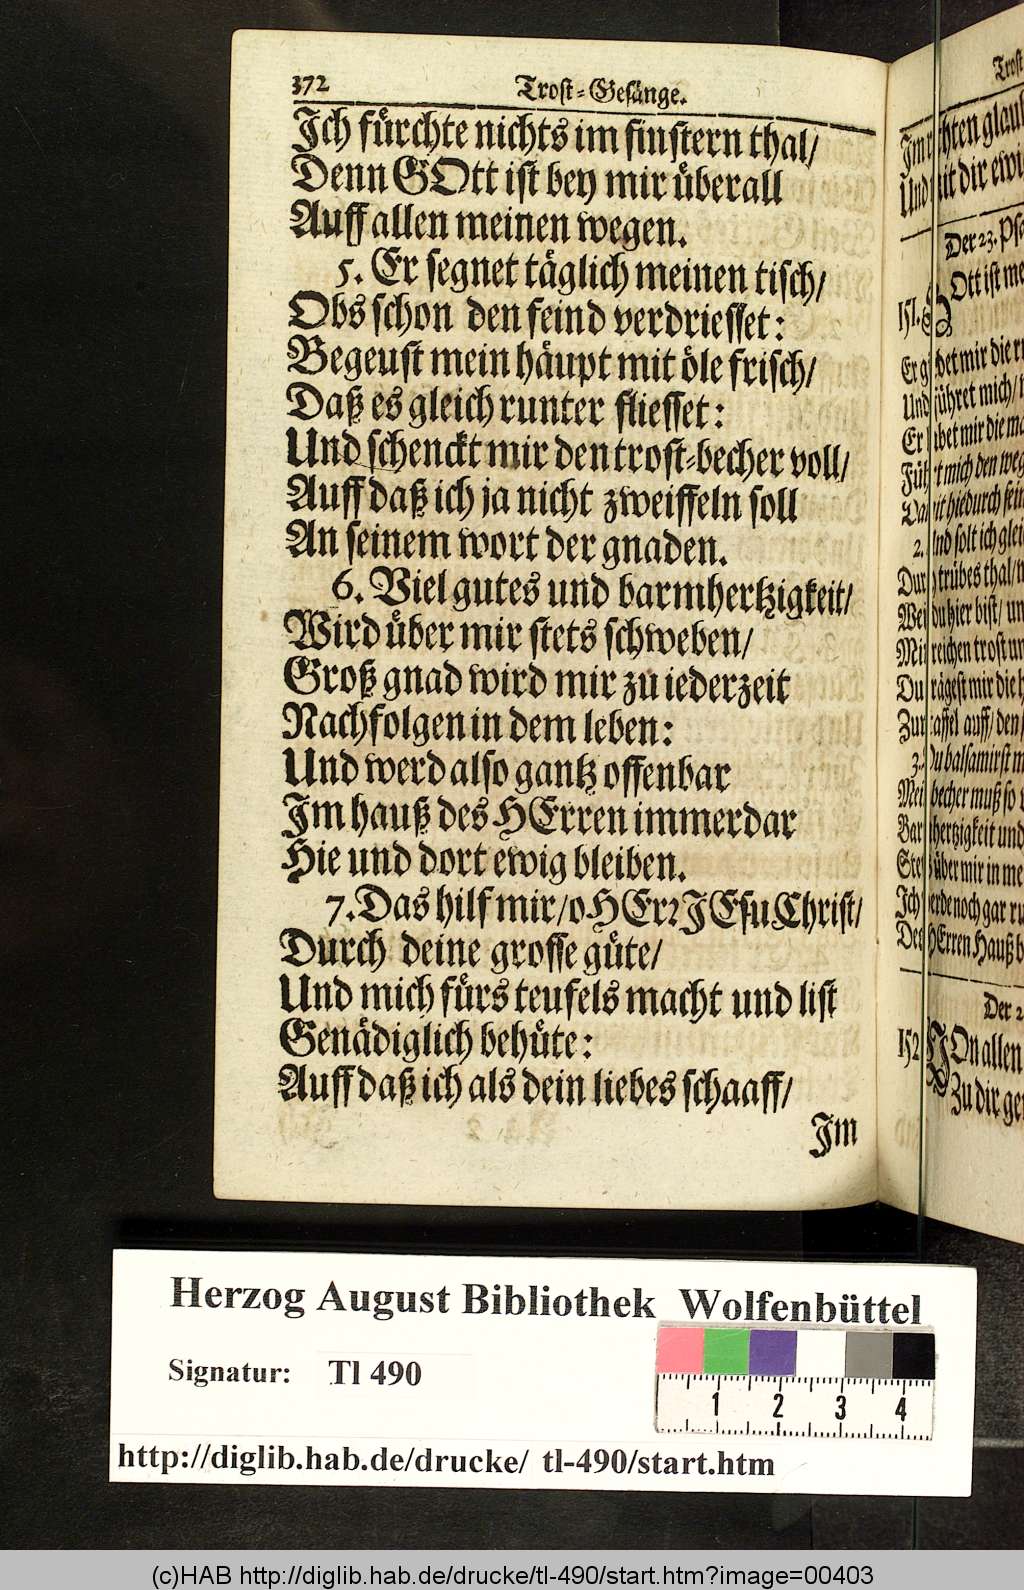 372 Trost-Gesänge.
Ich fürchte nichts im finstern thal/
Denn GOtt ist bey mir überall
Auff allen meinen wegen.
5. Er segnet täglich meinen tisch/
Obs schon den feind verdriesset:
Begeust mein häupt mit öle frisch/
Daß es gleich runter fliesset:
Und schenckt mir den trost-becher voll/
Auff daß ich ja nicht zweiffeln soll
An seinem wort der gnaden.
6. Viel gutes und barmhertzigkeit/
Wird über mir stets schweben/
Groß gnad wird mir zu iederzeit
Nachfolgen in dem leben:
Und werd also gantz offenbar
Im hauß des HErren immerdar
Hie und dort ewig bleiben.
7. Das hilf mir/o HErr JEsu Christ/
Durch deine grosse güte/
Und mich fürs teufels macht und list
Genädiglich behüte:
Auff daß ich als dein liebes schaaff/
Im
Trost
Und mit dir ewi
Der 23. Psa
151. GOtt ist me
Er g bet mir die
Und führet mich/
Er bet mir die
Füh rt mich den weg
hiedurch sein
2. Und solt ich glei
Dur trübes thal/
Wei du hier bist/ un
Mit reichen trost un
Du trägest mir die
Zur taffel auff/ den
3. Du balsamirst m
Mei becher muß so
Bar hertzigkeit und
Ste über mir in me
Ich werde noch gar
Des HErren Hauß b
Der 2
152 VOn allen
Zu dir
Herzog August Bibliothek Wolfenbüttel
Signatur: Tl 490
1 2 3 4
http://diglib.hab.de/drucke/ tl-490/start.htm
(c)HAB http://diglib.hab.de/drucke/tl-490/start.htm?image=00403